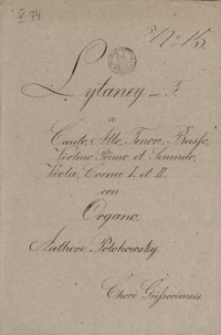 V 74
N: 15.
Lytaney in F.
a
Canto, Alto, Tenore, Basso,
Violino Primo et Secundo,
Viola, Cornu I. et II.
con
Organo.
Authore Polohowsky.
Chori Grissoviensis